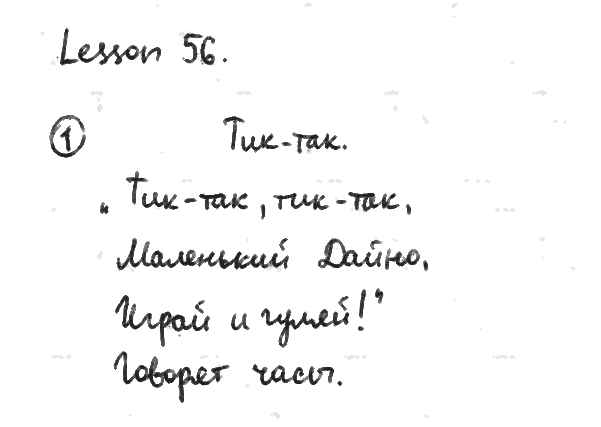 Lesson 56.
① Тик-так.
„Тик-так, тик-так,
Маленький Дайно,
Играй и гуляй!”
Говорят часы.